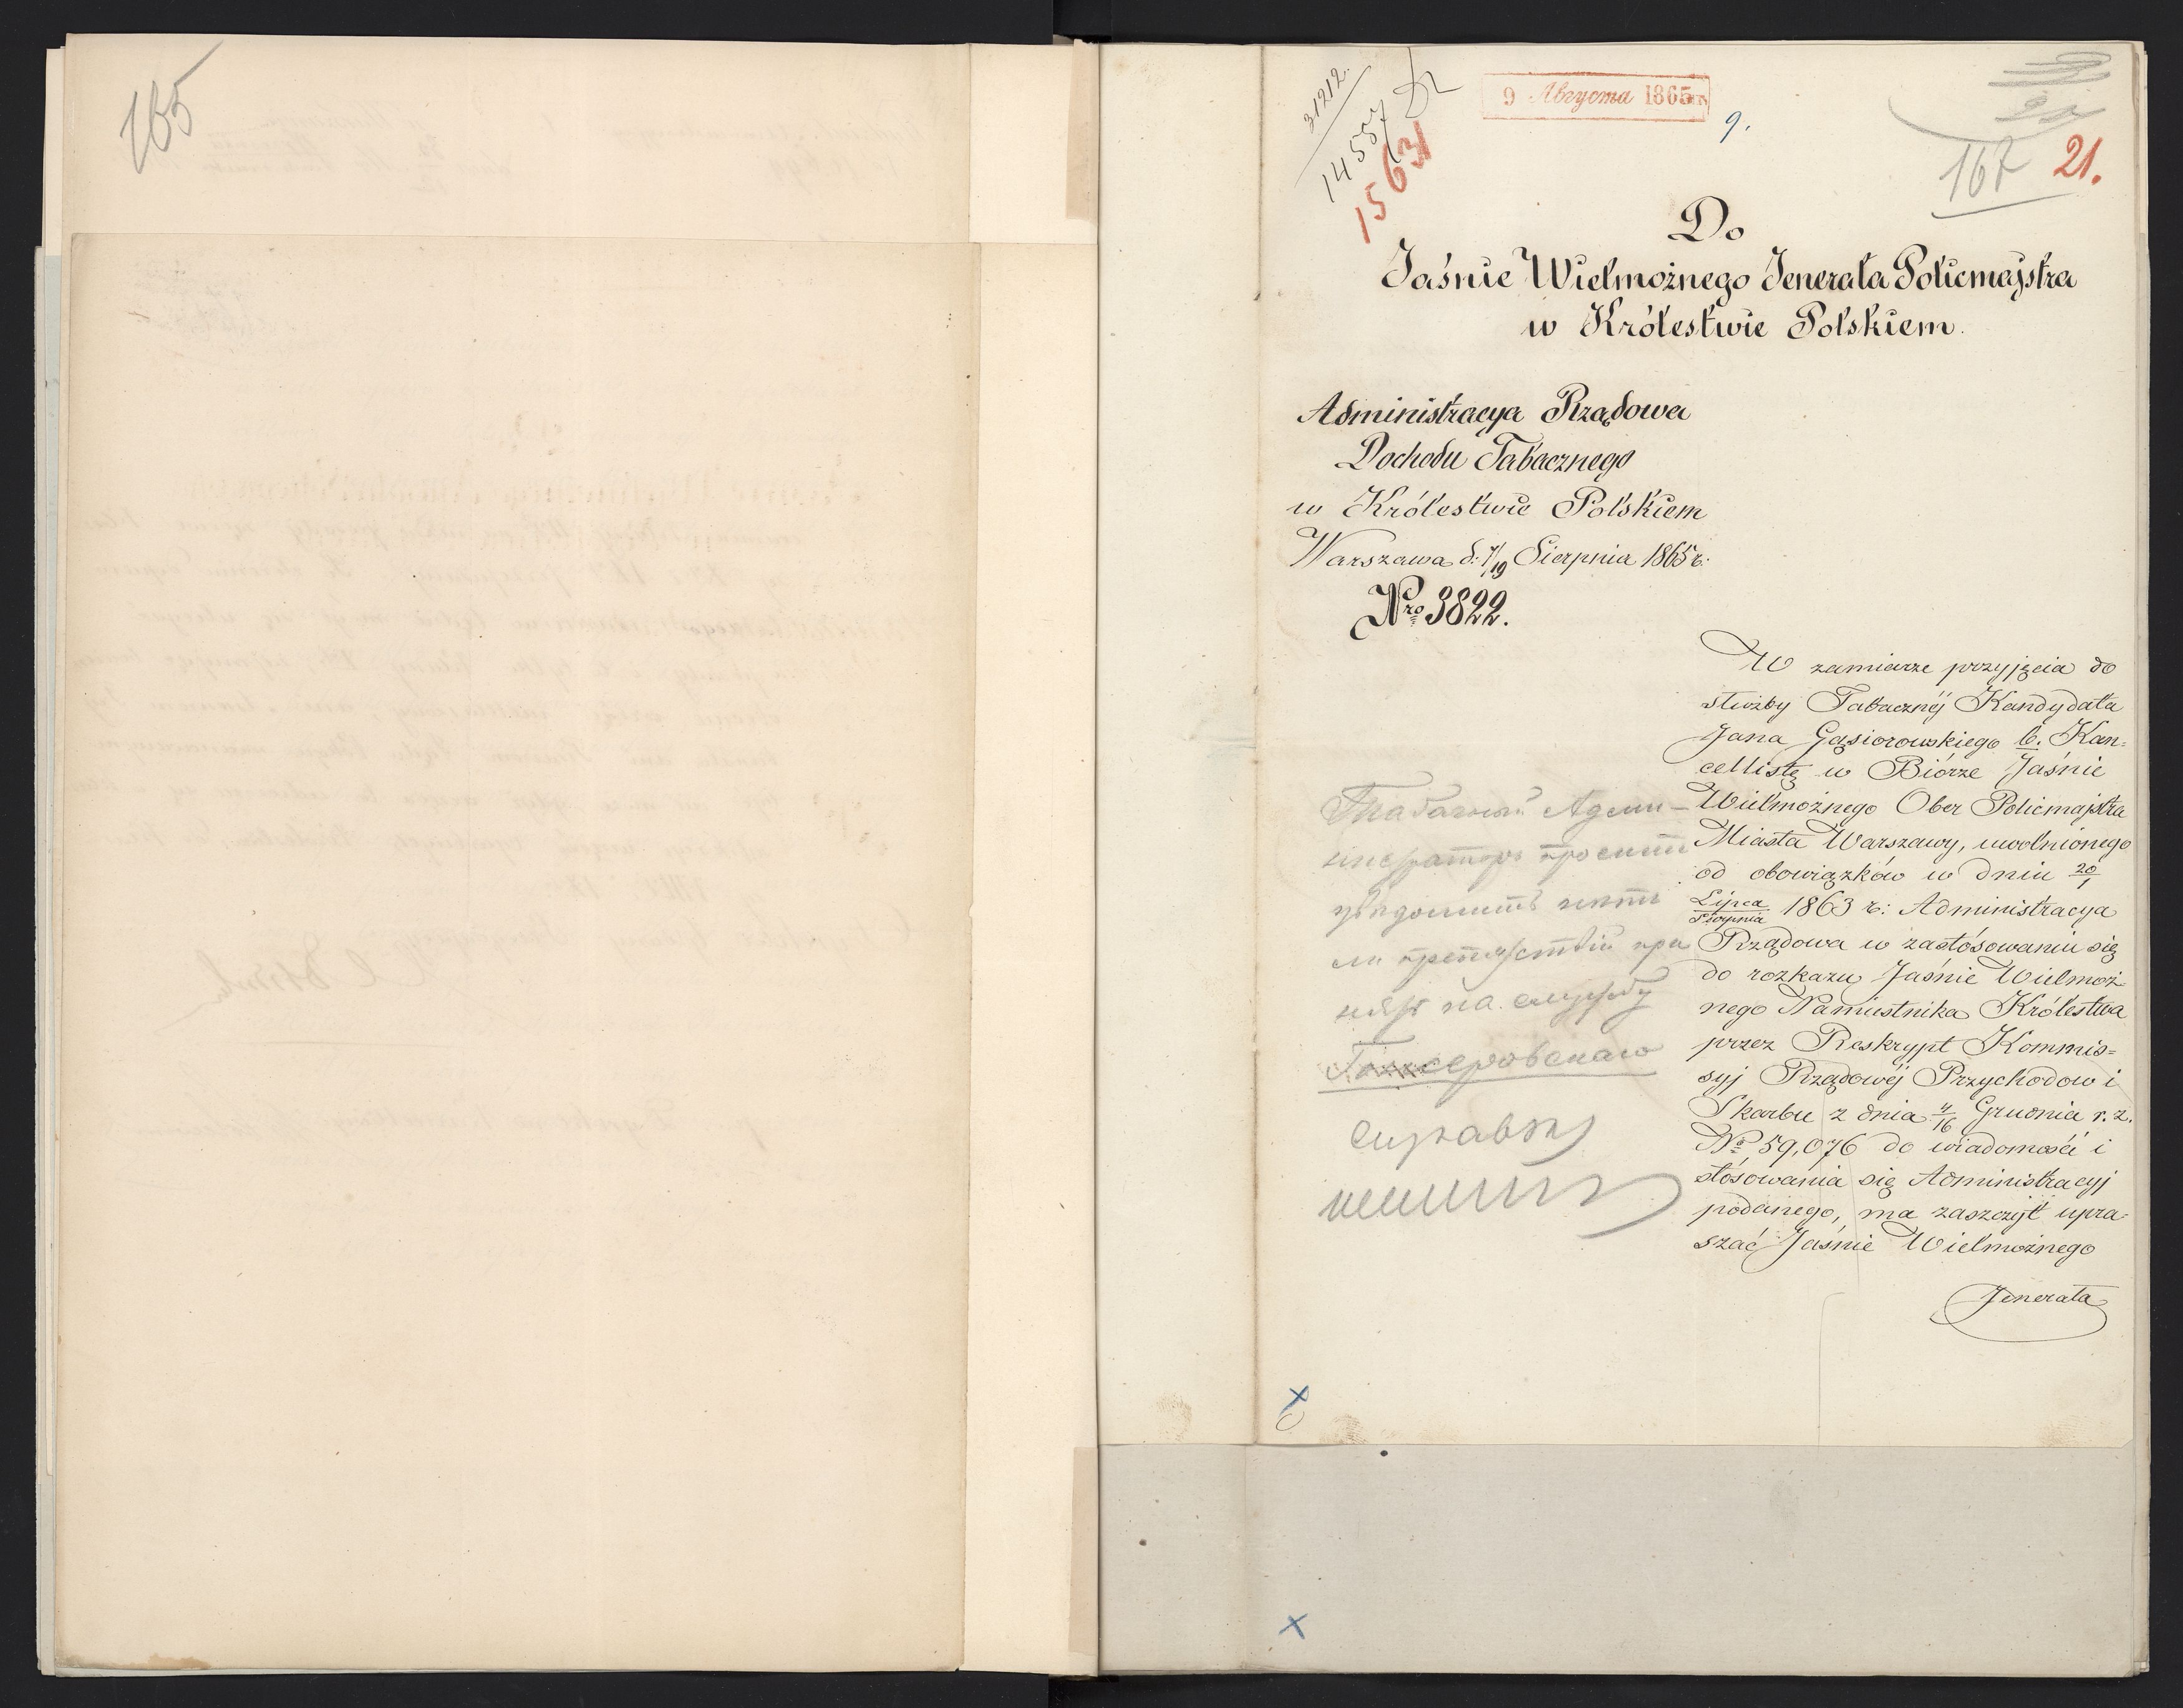 165
31212.
14557
15631
9 Августа 1865
9.
167
21.
Do
Jaśnie Wielmożnego Jenerała Policmajstra
w Królestwie Polskiem.
Administracya Rządowa
Dochodu Tabacznego
w Królestwie Polskiem
Warszawa d: 7/19 Sierpnia 1865 r.
Nro 3822.
W zamiarze przyjęcia do
służby Tabacznéj Kandydata
Jana Gąsiorowskiego b. Kan=
cellistę w Biórze Jaśnie
Wielmożnego Ober Policmajstra
Miasta Warszawy, uwolnionego
od obowiązków w dniu 20/1
Lipca/Sierpnia 1863 r: Administracya
Rządowa w zastósowaniu się
do rozkazu Jaśnie Wielmoż
nego Namiestnika Królestwa
przez Reskrypt Kommis=
syj Rządowéj Przychodow i
Skarbu z dnia 4/16 Grudnia r. z.
No 59,076 do wiadomości i
stósowania się Administracyj
podanego, ma zaszczyt upra=
szać Jaśnie Wielmożnego
Jenerała
Табачный Адми-
нистраторъ проситъ
увѣдомить нѣтъ
ли препятствій при
нять на службу
Гонсеровскаго
справку